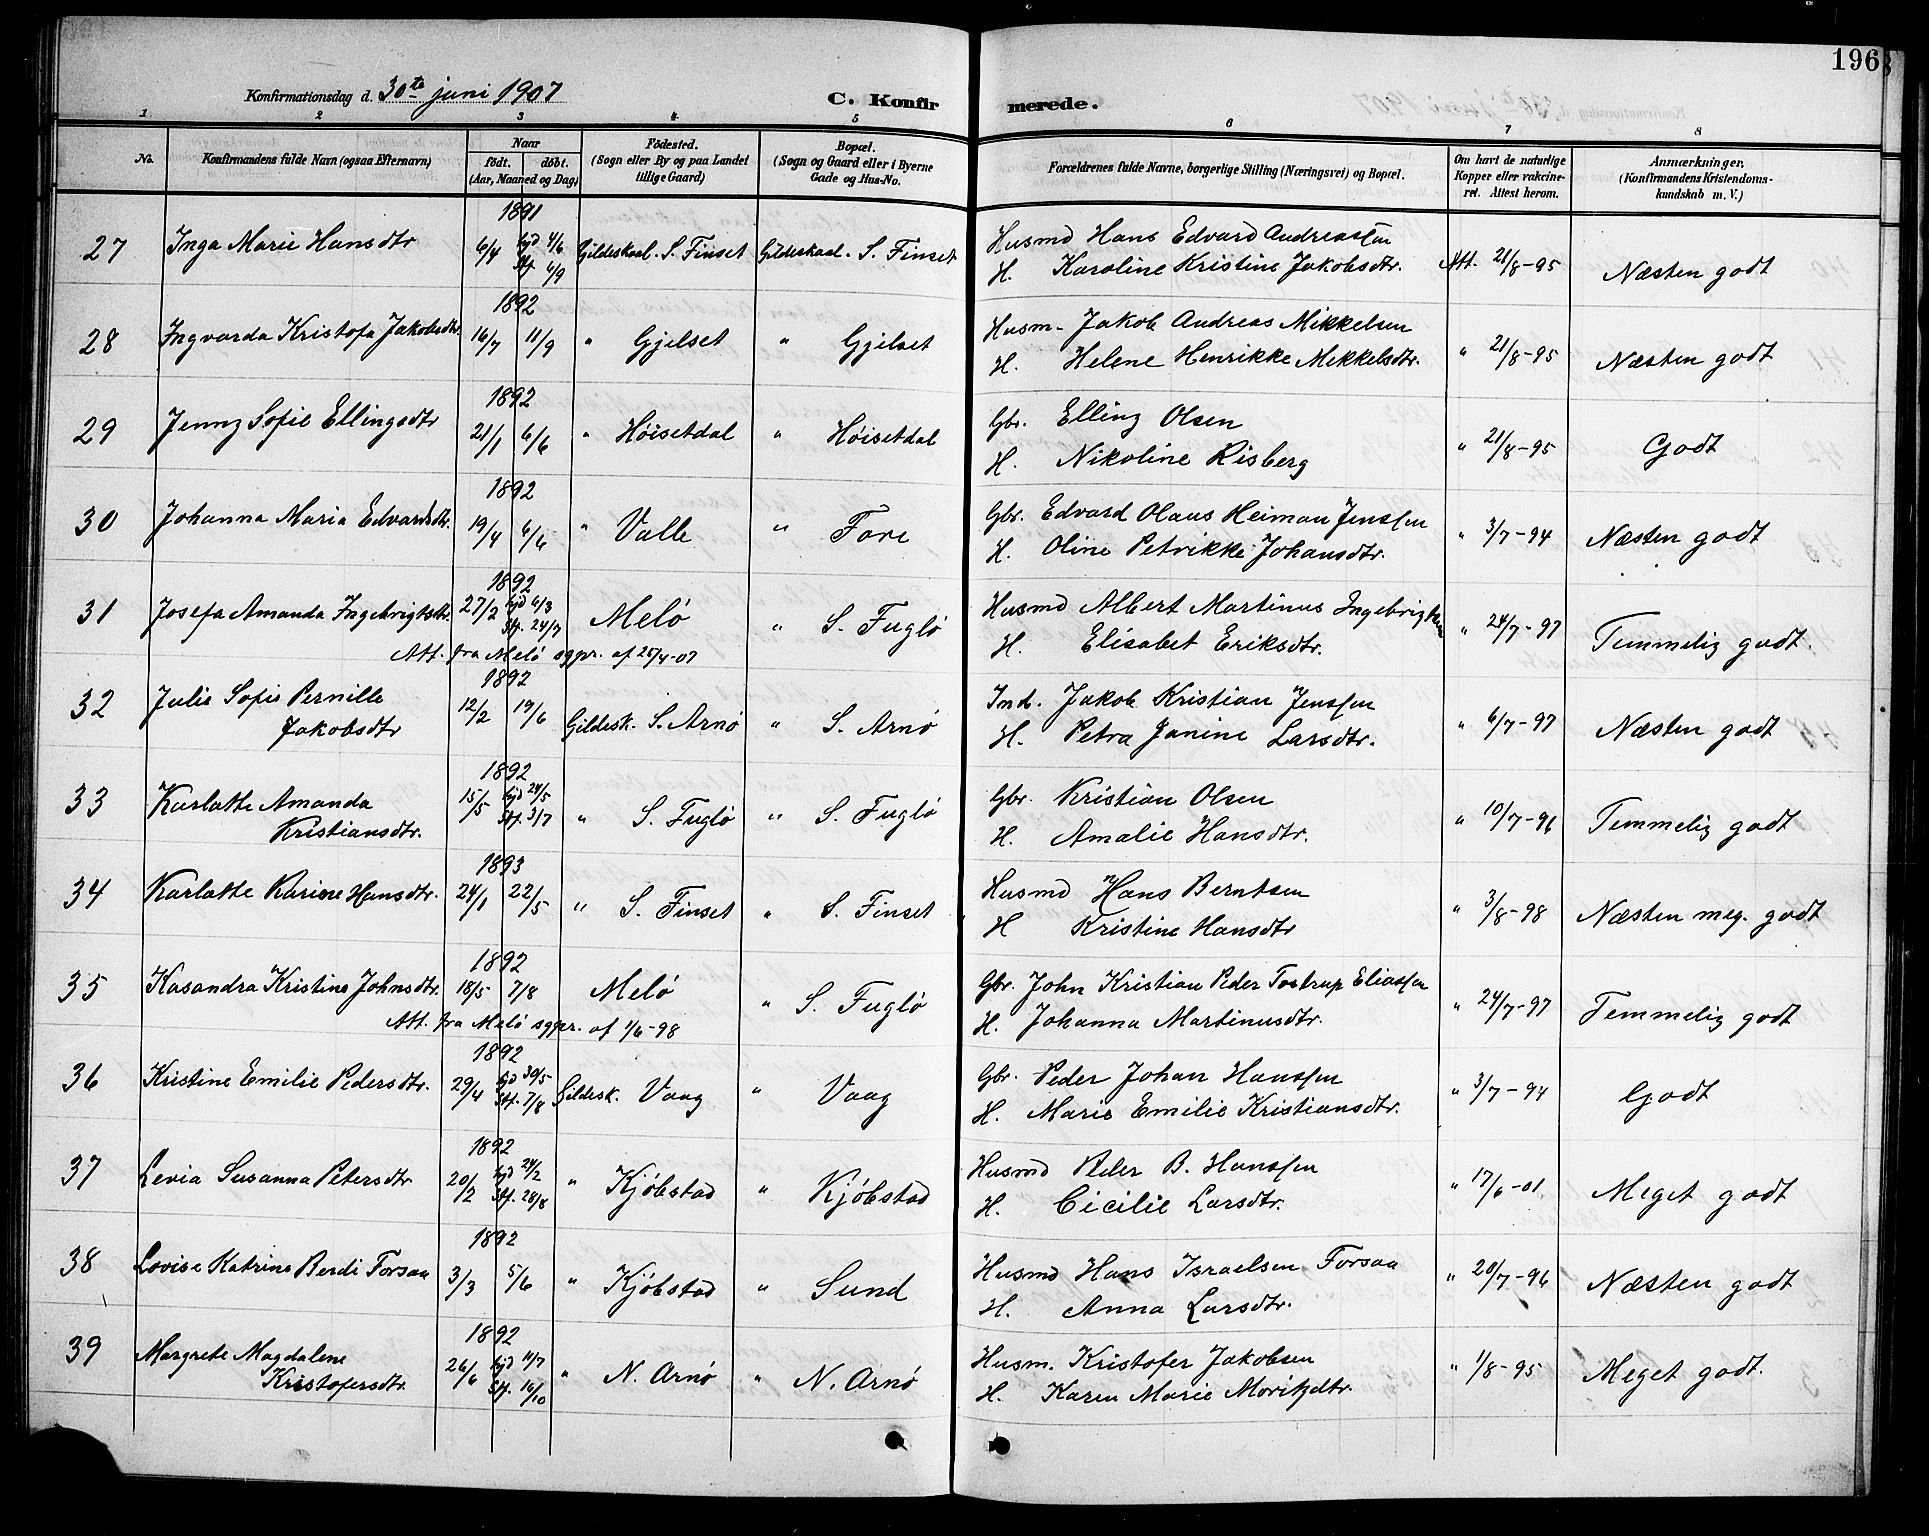 196
Konfirmationsdag d. 30te juni 1907
C. Konfirmerede.
1 2 3 4 5 6 7 8
No. Konfirmandens fulde Navn (ogsaa Efternavn) Naar født. døbt. (Aar, Maaned og Dag) Fødested. (Sogn eller By og paa Landet tillige Gaard) Bopæl. (Sogn og Gaard eller i Byerne Gade og Hus-No. Forældrenes fulde Navne, borgerlige Stilling (Næringsvei) og Bopæl. Om havt de naturlige Kopper eller vakcineret. Attest herom. Anmærkninger. (Konfirmandens Kristendomskundskab m. V.)
1891
27 Inga Marie Hansdtr 6/4 hjd 4/6 Stf. 6/9 Gildeskaal. S. Finset Gildeskaal. S. Finset Husmd Hans Edvard Andreassen
H. Karoline Kristine Jakobsdtr. Att. 21/8-95 Næsten godt
1892
28 Ingvarda Kristofa Jakobsdtr. 16/7 11/9 " Gjelset " Gjelset Husm. Jakob Andreas Mikkelsen
H. Helene Henrikke Mekkelsdtr. " 21/8-95 Næsten godt
1892
29 Jenny Sofie Ellingsdtr 21/1 6/6 " Høisetdal " Høisetdal Gbr. Elling Olsen
H. Nikoline Risberg " 21/8-95 Godt
1892
30 Johanna Maria Edvardsdtr. 19/4 6/6 " Valle " Fore Gbr. Edvard Olaus Heiman Jenssen
H. Oline Petrikke Johansdtr. " 3/7-94 Næsten godt
1892
31 Josefa Amanda Ingebrigtsdtr. 27/2 hjd 6/3 Stf. 24/7 Melø " S. Fuglø Husmd Albert Martinus Ingebrigtsen
H. Elisabet Eriksdtr. " 24/7-97 Temmelig godt.
Att. fra Melø sgpr. af 25/4-07
1892
32 Julie Sofie Pernille
Jakobsdtr 12/2 19/6 Gildesk. S. Arnø " S. Arnø Ind. Jakob Kristian Jenssen
H. Petra Janine Larsdtr. " 6/7-97 Næsten godt
1892
33 Karlotte Amanda
Kristiansdtr. 15/5 hjd 24/5 Stf. 3/7 " S. Fuglø " S. Fuglø Gbr. Kristian Olsen
H. Amalie Hansdtr. " 10/7-96 Temmelig godt
1893
34 Karlotte Karine Hansdtr. 24/1 22/5 " S. Finset " S. Finset Husmd Hans Berntsen
H Kristine Hansdtr " 3/8-98 Næsten meg. godt
1892
35 Kasandra Kristine Johnsdtr. 18/5 7/8 Melø " S. Fuglø Gbr. John Kristian Peder Tostrup Eliassen
H. Johanna Martinusdtr. " 24/7-97 Temmelig godt
Att. fra Melø sgpr. af 1/6-98
1892
36 Kristine Emilie Pedersdtr. 29/4 hjd 30/5 Stf. 7/8 Gildesk. Vaag " Vaag Gbr. Peder Johan Hanssen
H. Marie Emilie Kristiansdtr. " 3/7-94 Godt
1892
37 Levia Susanna Petersdtr 20/2 hjd 24/2 Stf. 28/8 " Kjøbstad " Kjøbstad Husmd Peder B. Hanssen
H. Cicilie Larsdtr. " 17/6-01. Meget godt
1892
38 Lovise Katrine Berdi Forsaa 3/3 5/6 " Kjøbstad " Sund Husmd Hans Israelsen Forsaa
H. Anna Larsdtr. " 20/7-96 Næsten godt
1892
39 Margrete Magdalene
Kristofersdtr. 26/6 hjd 11/7 Stf. 16/10 " N. Arnø " N. Arnø Husm. Kristofer Jakobsen
H. Karen Marie Moritzdtr. " 1/8-95 Meget godt.